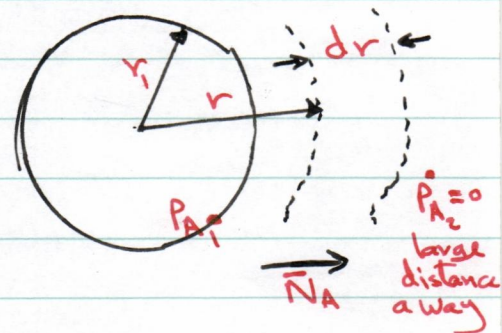 dr
r₁
r
P_A₁
P_A₂ = 0
large
distance
away
N̄_A